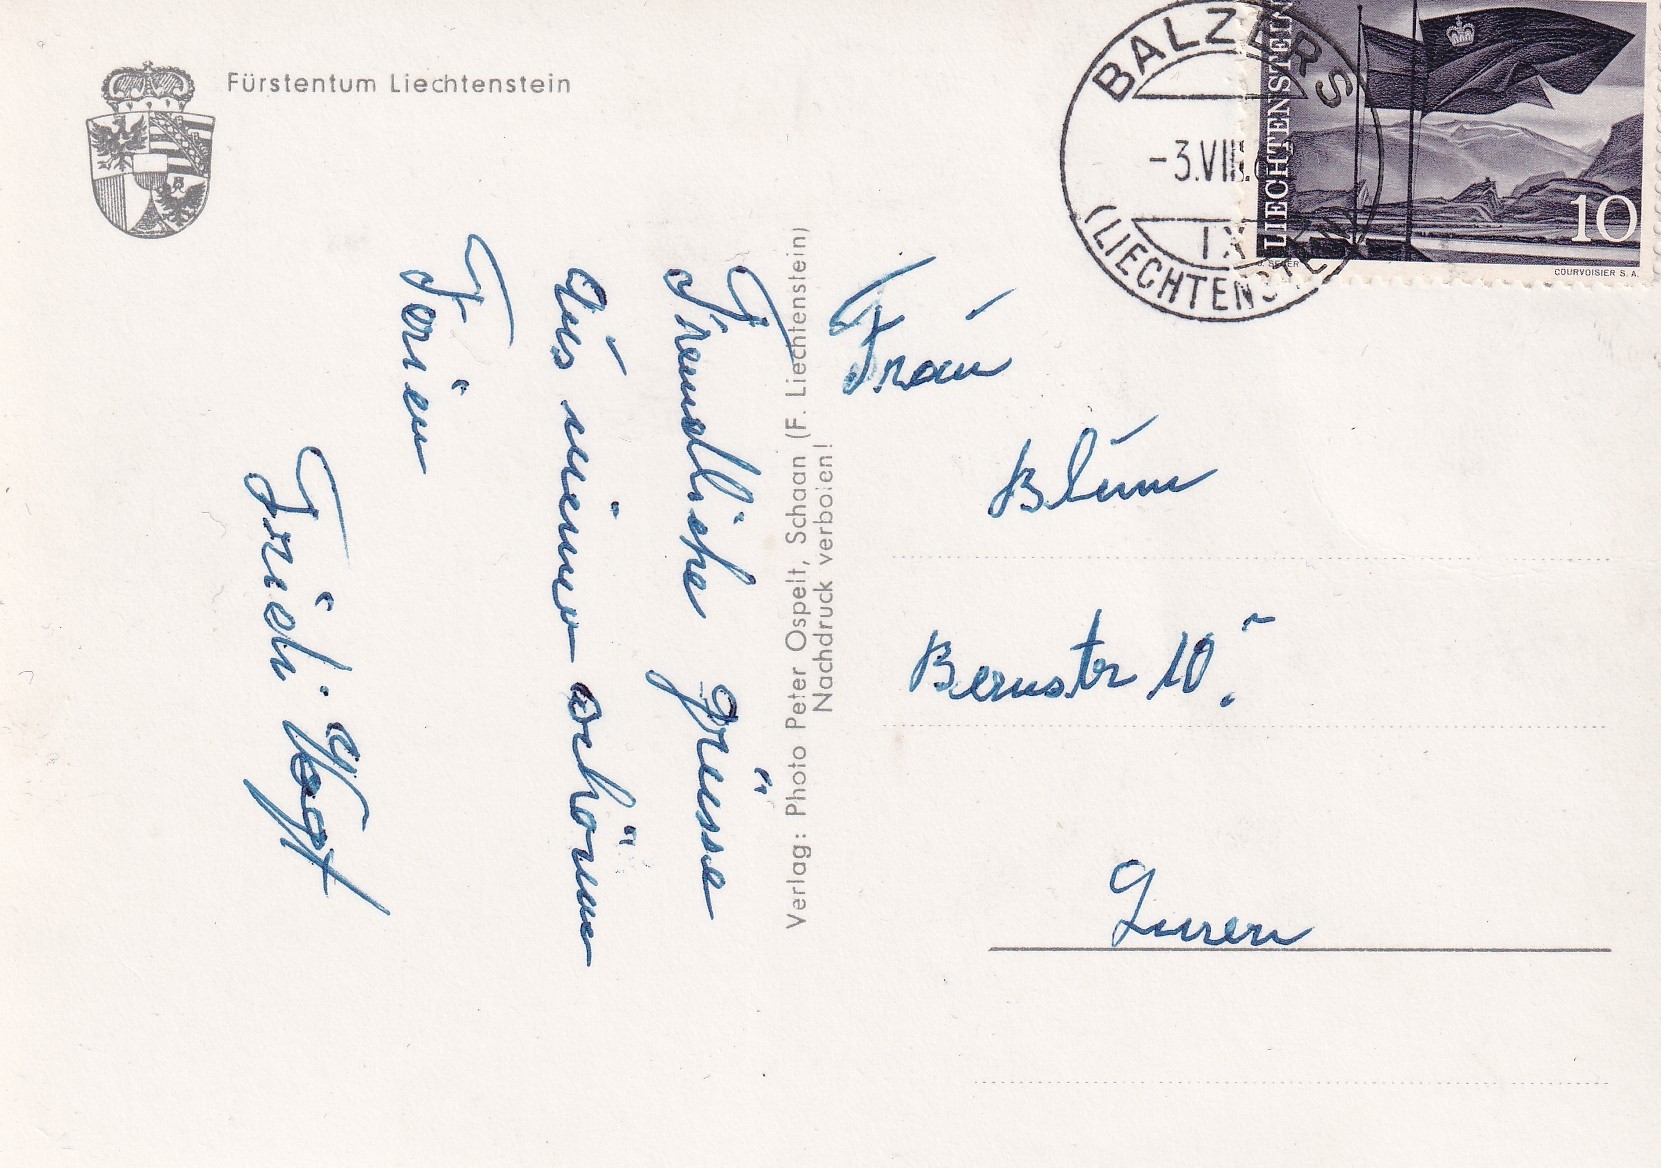 Fürstentum Liechtenstein
BALZERS
-3.VIII.6
IX
(LIECHTENSTEIN)
LIECHTENSTEIN
10
COURVOISIER S. A.
Freundliche grüsse
Aus meinen schönen
Ferien
Fridi Vogt
Verlag: Photo Peter Ospelt, Schaan (F. Liechtenstein)
Nachdruck verboten!
Frau
Blum
Bernstr 10.
Luzern